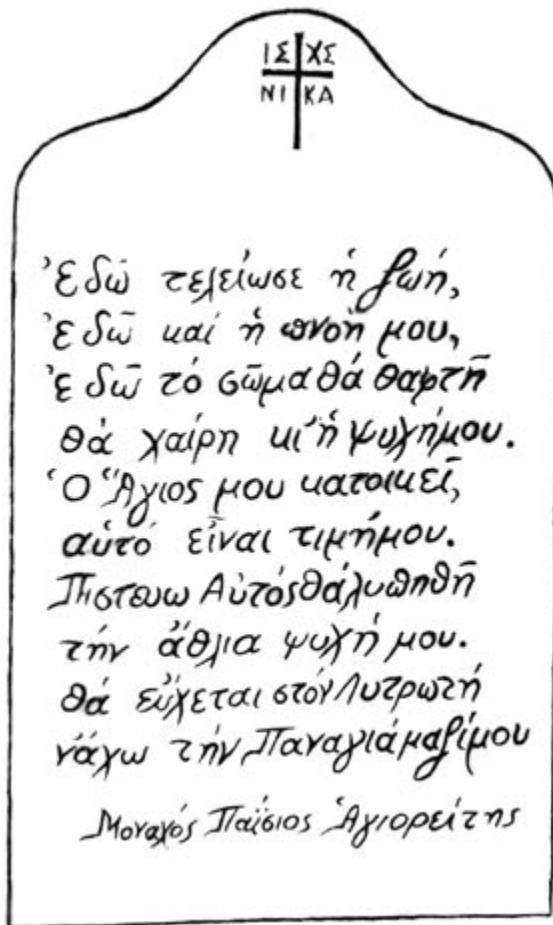 ΙΣ ΧΣ
ΝΙ ΚΑ
Ἐδῶ τελείωσε ἡ ζωή,
ἐδῶ καί ἡ πνοή μου,
ἐδῶ τό σῶμα θά θαφτῆ
θά χαίρη κι' ἡ ψυχή μου.
Ὁ Ἅγιος μου κατοικεῖ,
αὐτό εἶναι τιμή μου.
Πιστευω Αὐτός θά λυπηθῆ
τήν ἄθλια ψυχή μου.
θά εὔχεται στόν Λυτρωτή
νἄχω τήν Παναγιά μαζί μου
Μοναχός Παΐσιος Ἁγιορείτης